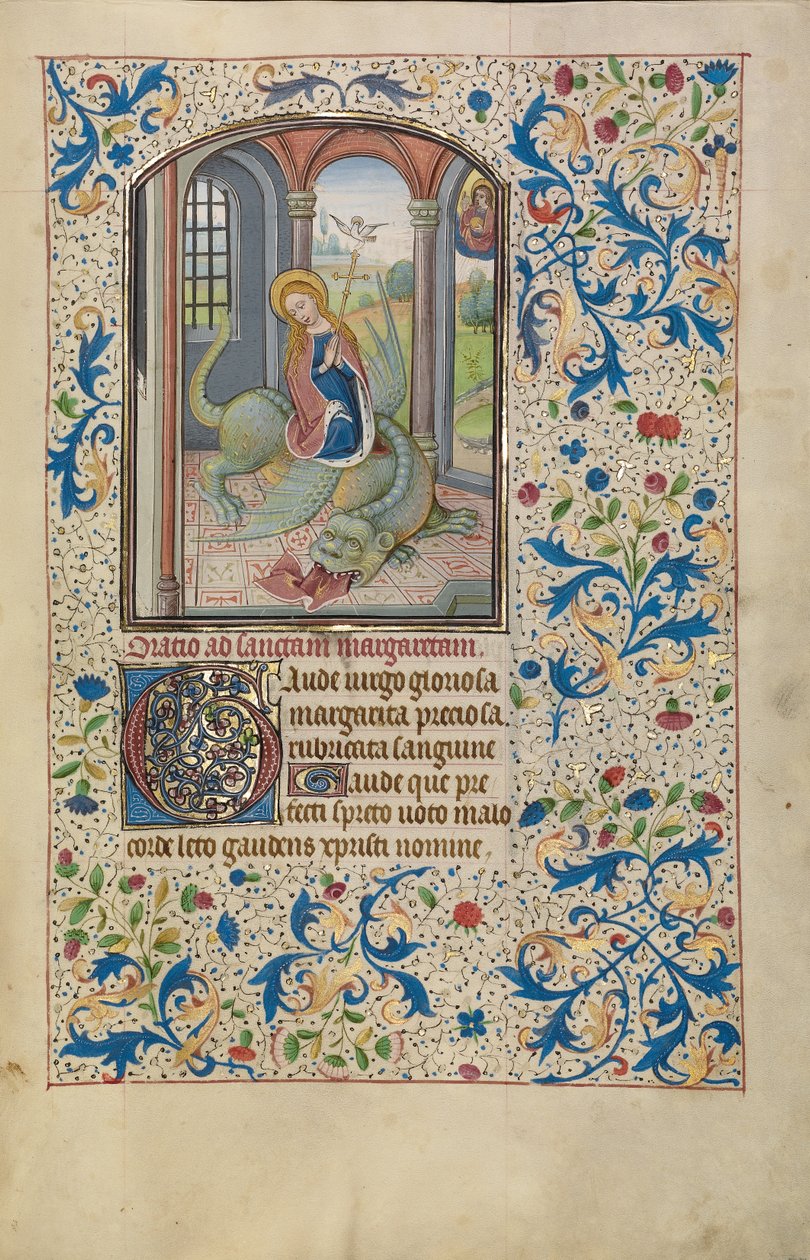 Oratio ad sanctam margaretam.
Gaude uirgo gloriosa
margarita preciosa
rubricata sanguine
Gaude que pre
fecti spreto uoto malo
corde leto gaudens xpristi nomine,